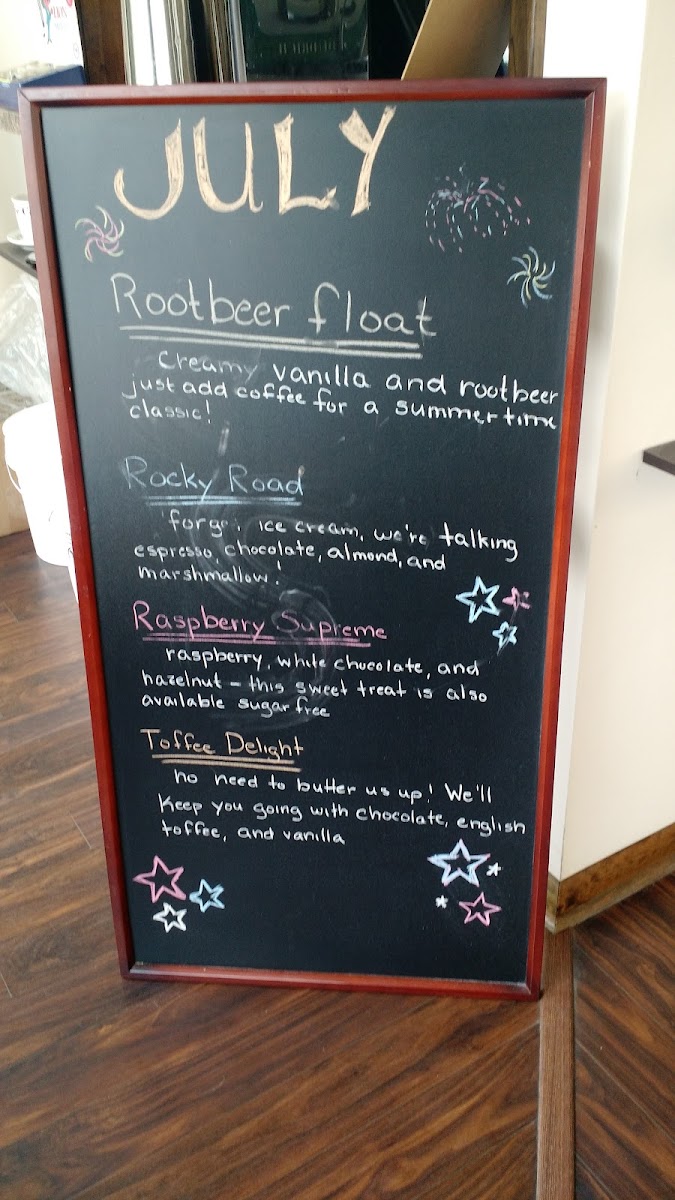 JULY
Rootbeer float
Creamy vanilla and rootbeer
just add coffee for a summertime
classic!
Rocky Road
ice cream, we're talking
espresso, chocolate, almond, and
marshmallow!
Raspberry Supreme
raspberry, white chocolate, and
hazelnut - this sweet treat is also
available sugar free
Toffee Delight
no need to butter us up! We'll
Keep you going with chocolate, english
toffee, and vanilla